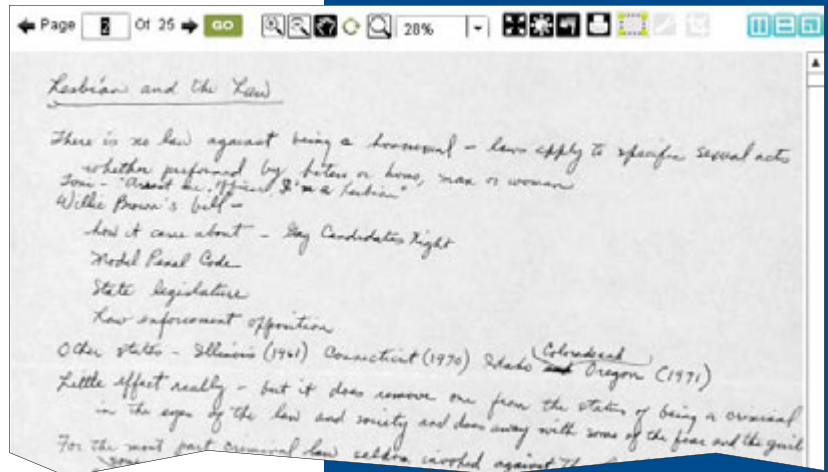 Page 2 Of 25 GO 28%
Lesbian and the Law
There is no law against being a homosexual – laws apply to specific sexual acts
whether preformed by hetero or homo, man or woman
Toni – "Arrest me, officer, I'm a lesbian"
Willie Brown's bill –
how it came about – Gay Candidates Night
Model Penal Code
State legislature
Law enforcement opposition
Colorado and
Other states – Illinois (1961) Connecticut (1970) Idaho and Oregon (1971)
Little effect really – but it does remove one from the status of being a criminal
in the eyes of the law and society and does away with some of the fear and the guilt
For the most part criminal law seldom invoked against